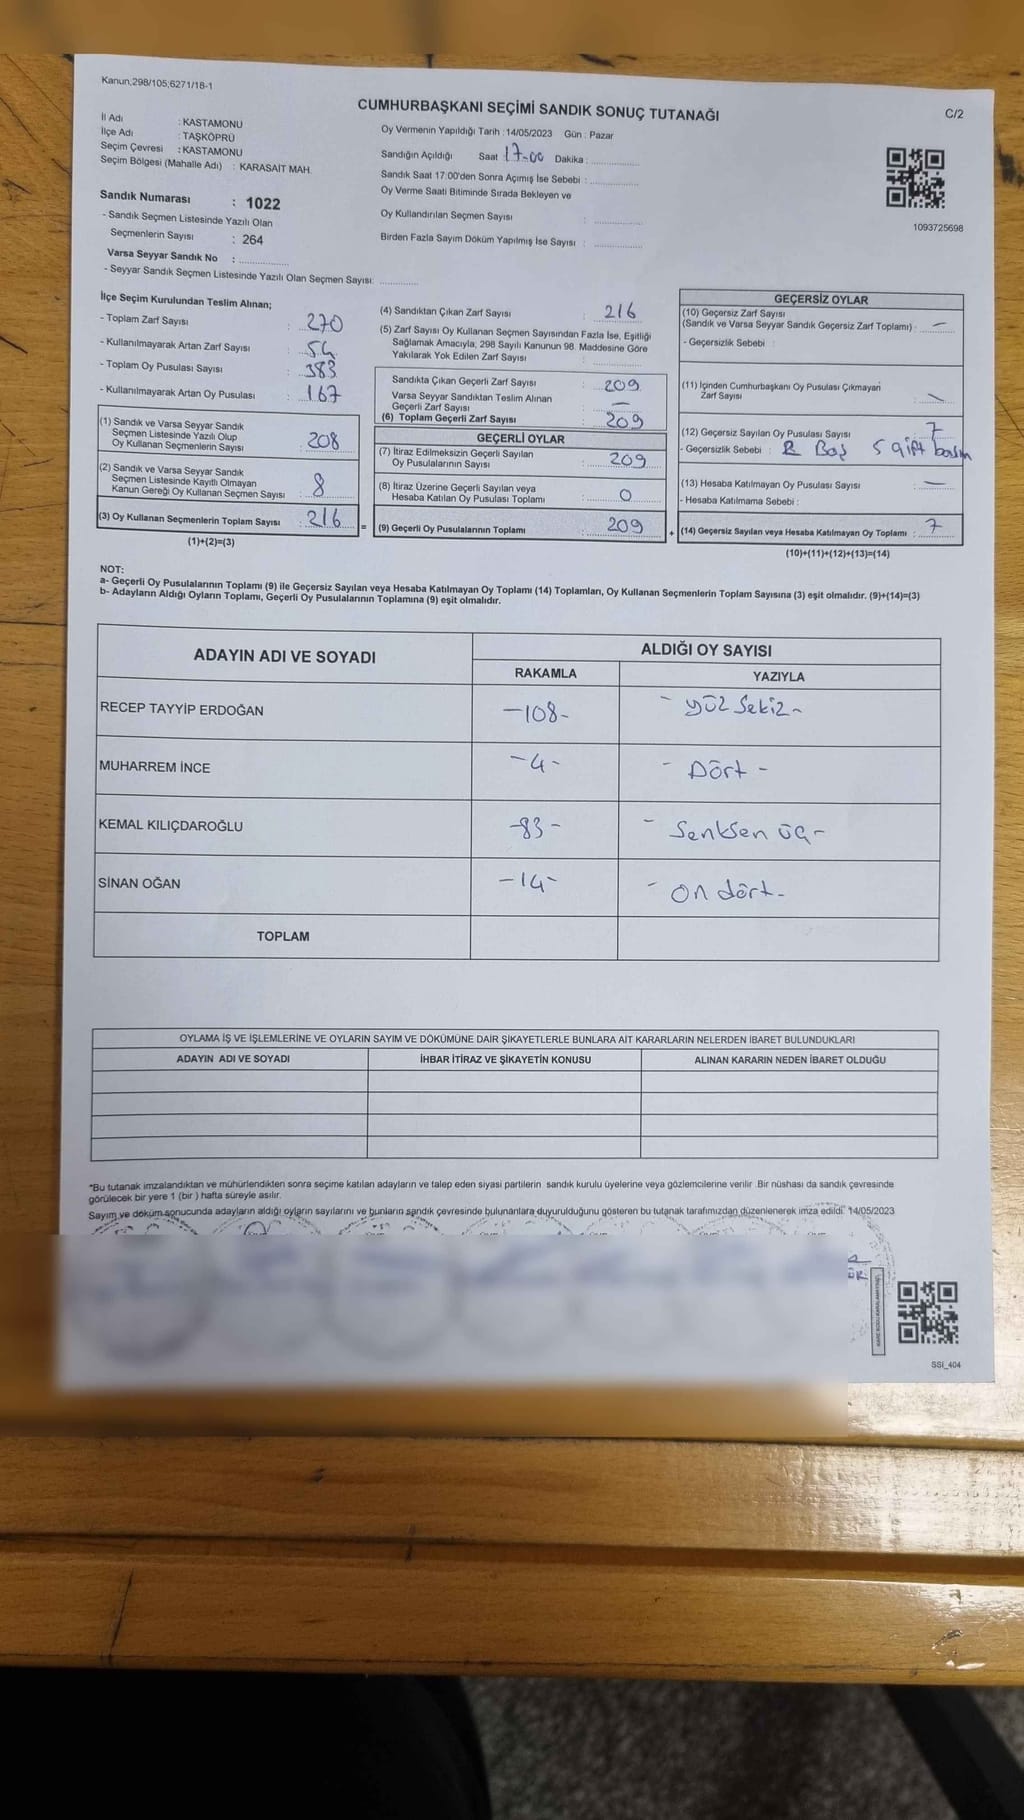 Kanun;298/105;6271/18-1
CUMHURBAŞKANI SEÇİMİ SANDIK SONUÇ TUTANAĞI
C/2
İl Adı : KASTAMONU
İlçe Adı : TAŞKÖPRÜ
Seçim Çevresi : KASTAMONU
Seçim Bölgesi (Mahalle Adı) : KARASAİT MAH.
Sandık Numarası : 1022
- Sandık Seçmen Listesinde Yazılı Olan
Seçmenlerin Sayısı : 264
Varsa Seyyar Sandık No :
- Seyyar Sandık Seçmen Listesinde Yazılı Olan Seçmen Sayısı:
Oy Vermenin Yapıldığı Tarih : 14/05/2023 Gün : Pazar
Sandığın Açıldığı Saat : 17-00 Dakika :
Sandık Saat 17:00'den Sonra Açımış İse Sebebi :
Oy Verme Saati Bitiminde Sırada Bekleyen ve
Oy Kullandırılan Seçmen Sayısı :
Birden Fazla Sayım Döküm Yapılmış İse Sayısı :
1093725698
İlçe Seçim Kurulundan Teslim Alınan;
- Toplam Zarf Sayısı : 270
- Kullanılmayarak Artan Zarf Sayısı : 54
- Toplam Oy Pusulası Sayısı : 383
- Kullanılmayarak Artan Oy Pusulası : 167
(1) Sandık ve Varsa Seyyar Sandık
Seçmen Listesinde Yazılı Olup
Oy Kullanan Seçmenlerin Sayısı : 208
(2) Sandık ve Varsa Seyyar Sandık
Seçmen Listesinde Kayıtlı Olmayan
Kanun Gereği Oy Kullanan Seçmen Sayısı : 8
(3) Oy Kullanan Seçmenlerin Toplam Sayısı : 216
(1)+(2)=(3)
(4) Sandıktan Çıkan Zarf Sayısı : 216
(5) Zarf Sayısı Oy Kullanan Seçmen Sayısından Fazla İse, Eşitliği
Sağlamak Amacıyla, 298 Sayılı Kanunun 98. Maddesine Göre
Yakılarak Yok Edilen Zarf Sayısı :
Sandıkta Çıkan Geçerli Zarf Sayısı : 209
Varsa Seyyar Sandıktan Teslim Alınan
Geçerli Zarf Sayısı : —
(6) Toplam Geçerli Zarf Sayısı : 209
GEÇERLİ OYLAR
(7) İtiraz Edilmeksizin Geçerli Sayılan
Oy Pusulalarının Sayısı : 209
(8) İtiraz Üzerine Geçerli Sayılan veya
Hesaba Katılan Oy Pusulası Toplamı : 0
= (9) Geçerli Oy Pusulalarının Toplamı : 209
GEÇERSİZ OYLAR
(10) Geçersiz Zarf Sayısı
(Sandık ve Varsa Seyyar Sandık Geçersiz Zarf Toplamı) : —
- Geçersizlik Sebebi :
(11) İçinden Cumhurbaşkanı Oy Pusulası Çıkmayan
Zarf Sayısı : —
(12) Geçersiz Sayılan Oy Pusulası Sayısı : 7
- Geçersizlik Sebebi : 2 Boş 5 çift basım
(13) Hesaba Katılmayan Oy Pusulası Sayısı : —
- Hesaba Katılmama Sebebi :
+ (14) Geçersiz Sayılan veya Hesaba Katılmayan Oy Toplamı : 7
(10)+(11)+(12)+(13)=(14)
NOT:
a- Geçerli Oy Pusulalarının Toplamı (9) ile Geçersiz Sayılan veya Hesaba Katılmayan Oy Toplamı (14) Toplamları, Oy Kullanan Seçmenlerin Toplam Sayısına (3) eşit olmalıdır. (9)+(14)=(3)
b- Adayların Aldığı Oyların Toplamı, Geçerli Oy Pusulalarının Toplamına (9) eşit olmalıdır.
ADAYIN ADI VE SOYADI ALDIĞI OY SAYISI
RAKAMLA YAZIYLA
RECEP TAYYİP ERDOĞAN -108- - yüz Sekiz -
MUHARREM İNCE -4- - Dört -
KEMAL KILIÇDAROĞLU -83- - Senksen üç -
SİNAN OĞAN -14- - On dört -
TOPLAM
OYLAMA İŞ VE İŞLEMLERİNE VE OYLARIN SAYIM VE DÖKÜMÜNE DAİR ŞİKAYETLERLE BUNLARA AİT KARARLARIN NELERDEN İBARET BULUNDUKLARI
ADAYIN ADI VE SOYADI İHBAR İTİRAZ VE ŞİKAYETİN KONUSU ALINAN KARARIN NEDEN İBARET OLDUĞU
*Bu tutanak imzalandıktan ve mühürlendikten sonra seçime katılan adayların ve talep eden siyasi partilerin sandık kurulu üyelerine veya gözlemcilerine verilir. Bir nüshası da sandık çevresinde
görülecek bir yere 1 (bir ) hafta süreyle asılır.
Sayım ve döküm sonucunda adayların aldığı oyların sayılarını ve bunların sandık çevresinde bulunanlara duyurulduğunu gösteren bu tutanak tarafımızdan düzenlenerek imza edildi. 14/05/2023
SSİ_404